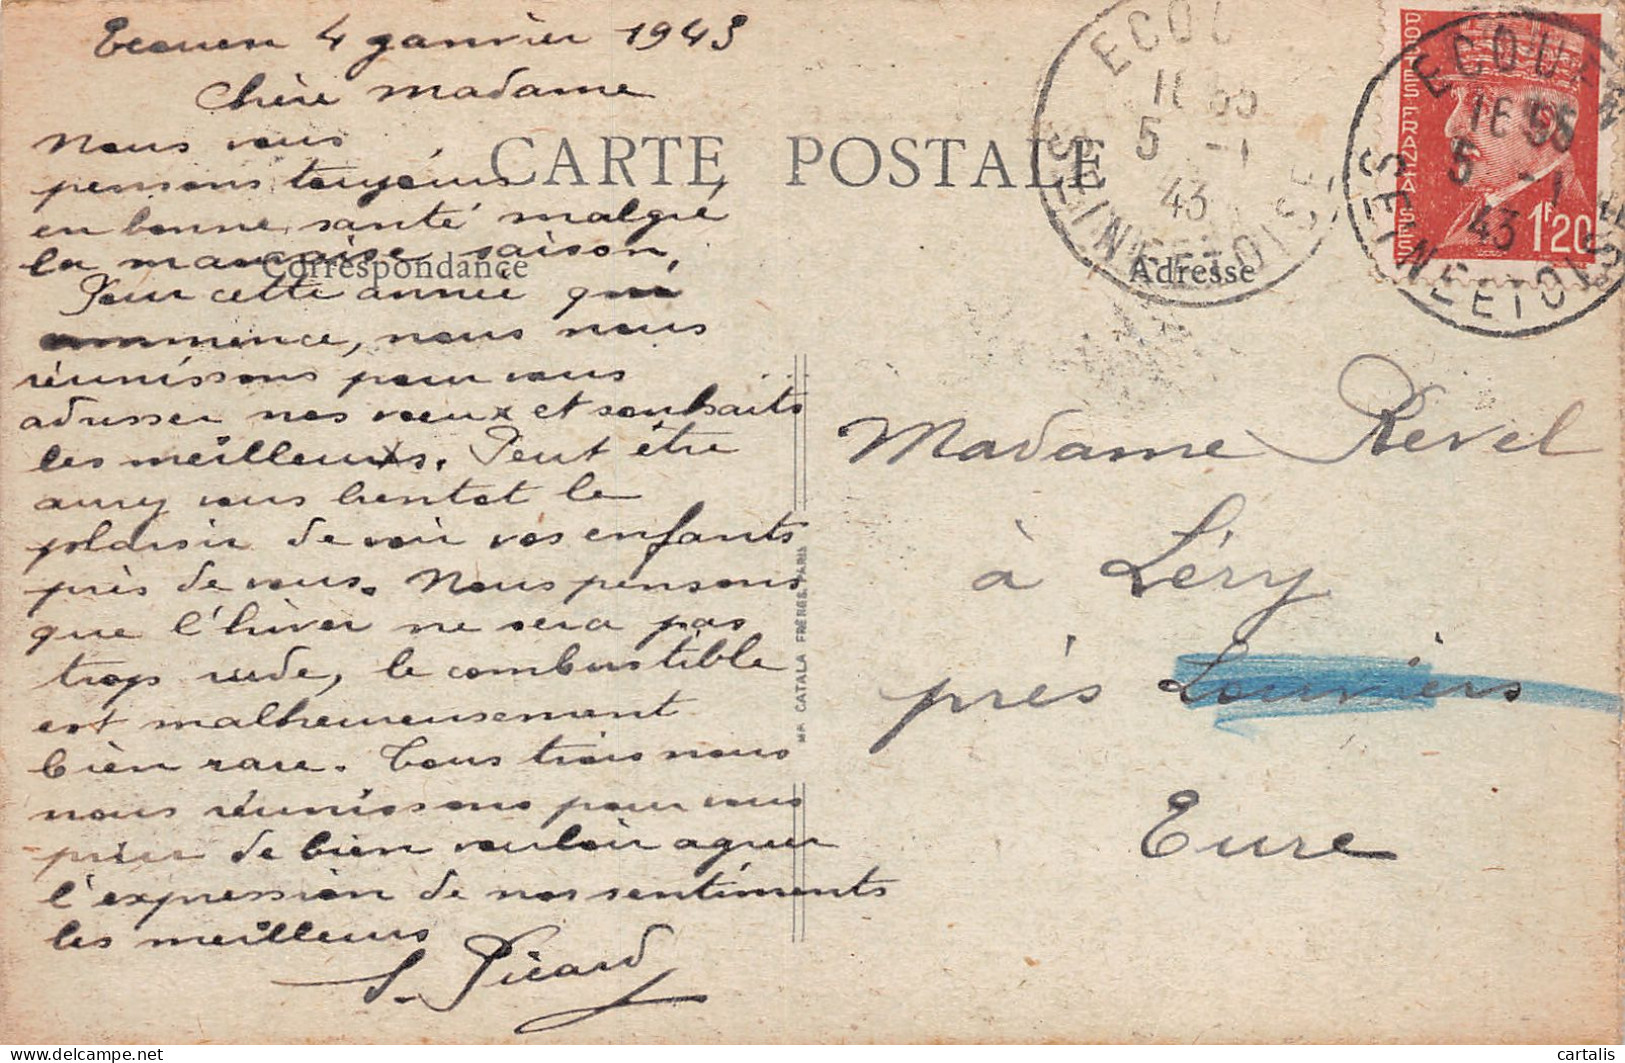 Ecouen 4 janvier 1943
Chère Madame
CARTE POSTALE
Correspondance
Nous vous
pensons toujours
en bonne santé, malgré
la mauvaise saison,
Pour cette année qui
commence, nous nous
réunissons pour vous
adresser nos vœux et souhaits
les meilleurs. Peut être
aurez vous bientot le
plaisir de voir vos enfants
près de vous. Nous pensons
que l'hiver ne sera pas
trop rude, le combustible
est malheureusement
bien rare. Tous trois nous
nous réunissons pour vous
prier de bien vouloir agréer
l'expression de nos sentiments
les meilleurs
S. Picard
IMP. CATALA FRÈRES, PARIS
Adresse
Madame Revel
à Léry
près Louviers
Eure
POSTES FRANÇAISES
1F20
ECOUEN
16 55
5 -1
43
SEINE ET OISE
ECOU
16 55
5 -1
43
SEINE ET OISE
www.delcampe.net
cartalis